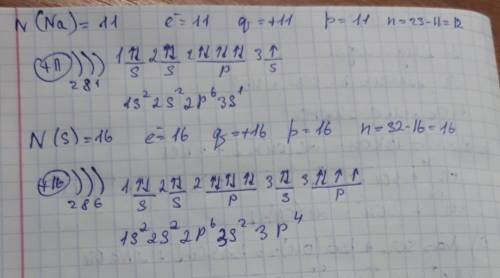 N (Na) = 11 e⁻ = 11 q = +11 p = 11 n = 23-11 = 12
+11 ))) 1 ↑↓ 2 ↑↓ 2 ↑↓ ↑↓ ↑↓ 3 ↑
2 8 1 s s p s
1s² 2s² 2p⁶ 3s¹
N (S) = 16 e⁻ = 16 q = +16 p = 16 n = 32-16 = 16
+16 ))) 1 ↑↓ 2 ↑↓ 2 ↑↓ ↑↓ ↑↓ 3 ↑↓ 3 ↑↓ ↑ ↑
2 8 6 s s p s p
1s² 2s² 2p⁶ 3s² 3p⁴